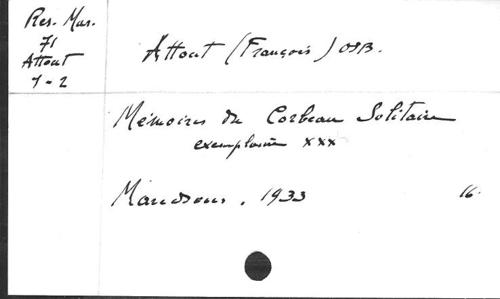 Res. Mar.
71
Attout
1-2
Attout (François) OSB.
Mémoires du Corbeau Solitaire
exemplaire xxx
Maredsous. 1933
16